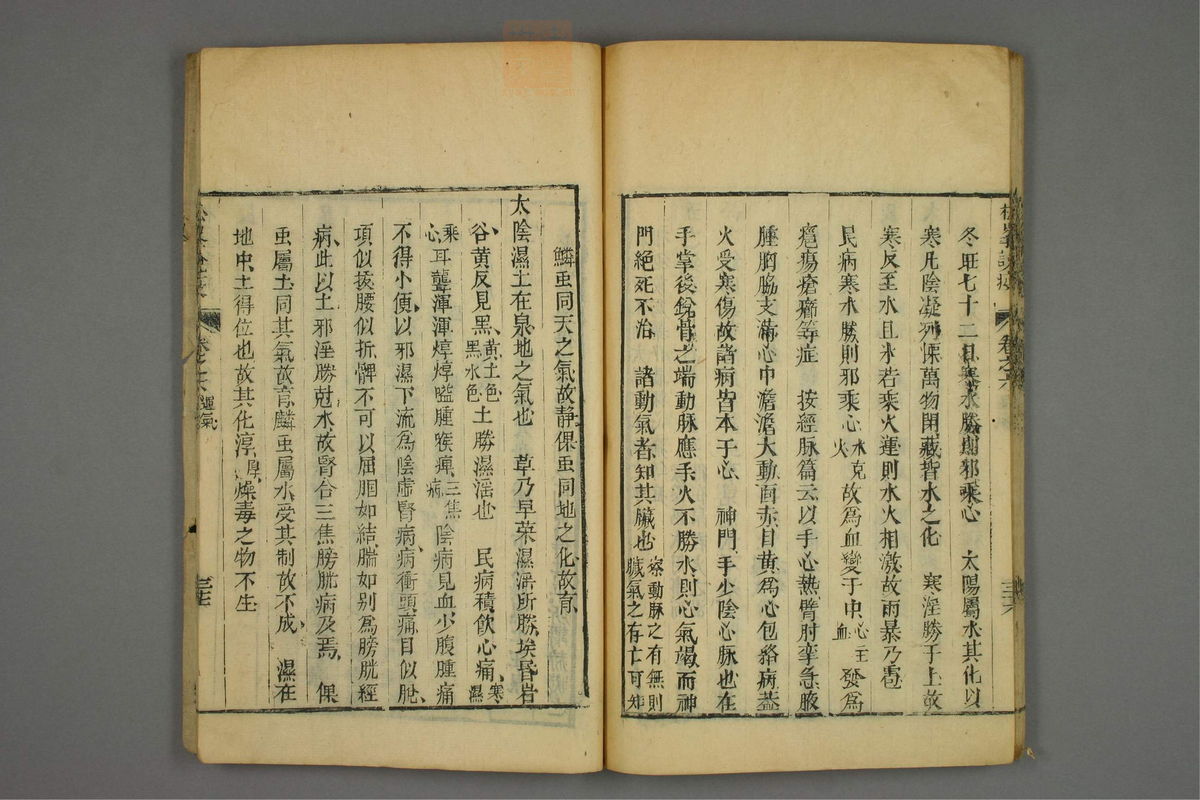 冬旺七十二日寒水勝則邪乘心　太陽屬水其化以
寒凡陰凝冽慄萬物閉藏皆水之化　寒淫勝于上故
寒反至水且氷若乘火運則水火相激故雨暴乃雹
民病寒水勝則邪乘心水克火故為血變于中心主血發為
癰瘍瘡癤等症　按經脉篇云以手心熱臂肘攣急腋
腫胸脇支滿心中澹澹大動面赤目黃為心包絡病蓋
火受寒傷故諸病皆本于心　神門手少陰心脉也在
手掌後銳骨之端動脉應手火不勝水則心氣竭而神
門絕死不治　諸動氣者知其臟也察動脉之有無則臟氣之存亡可知
卷之六
三十六
鱗虫同天之氣故靜倮虫同地之化故育
太陰濕土在泉地之氣也　草乃早荣濕淫所勝埃昏岩
谷黃反見黑黃土色黑水色土勝濕淫也　民病積飲心痛寒濕
乘心耳聾渾渾焞焞嗌腫喉痺三焦病陰病見血少腹腫痛
不得小便以邪濕下流為陰虛腎病病衝頭痛目似脫
項似拔腰似折髀不可以屈膕如結腨如别為膀胱經
病此以土邪淫勝尅水故腎合三焦膀胱病及焉　倮
虫屬土同其氣故育鱗虫屬水受其制故不成　濕在
地中土得位也故其化淳厚燥毒之物不生
卷之六
運氣
三十七